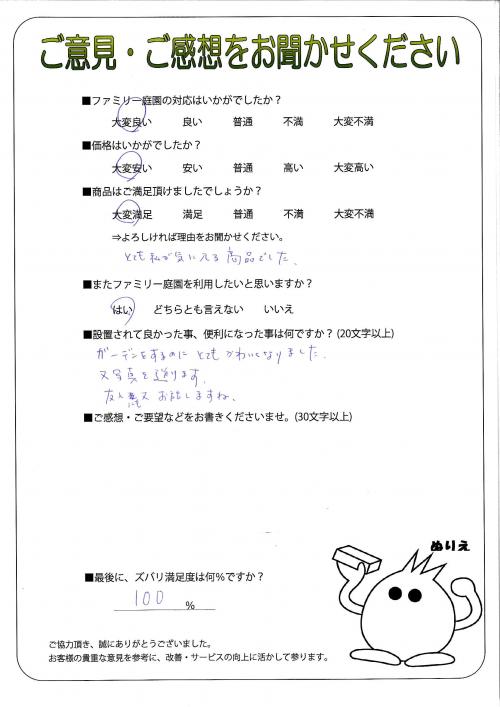 ご意見・ご感想をお聞かせください
■ファミリー庭園の対応はいかがでしたか？
大変良い 良い 普通 不満 大変不満
■価格はいかがでしたか？
大変安い 安い 普通 高い 大変高い
■商品はご満足頂けましたでしょうか？
大変満足 満足 普通 不満 大変不満
⇒よろしければ理由をお聞かせください。
とても私が気に入る商品でした。
■またファミリー庭園を利用したいと思いますか？
はい どちらとも言えない いいえ
■設置されて良かった事、便利になった事は何ですか？(20文字以上)
ガーデンをするのにとてもかわいくなりました。
又写真を送ります。
友人 お話しますね。
■ご感想・ご要望などをお書きくださいませ。(30文字以上)
ぬりえ
■最後に、ズバリ満足度は何％ですか？
100 ％
ご協力頂き、誠にありがとうございました。
お客様の貴重な意見を参考に、改善・サービスの向上に活かして参ります。